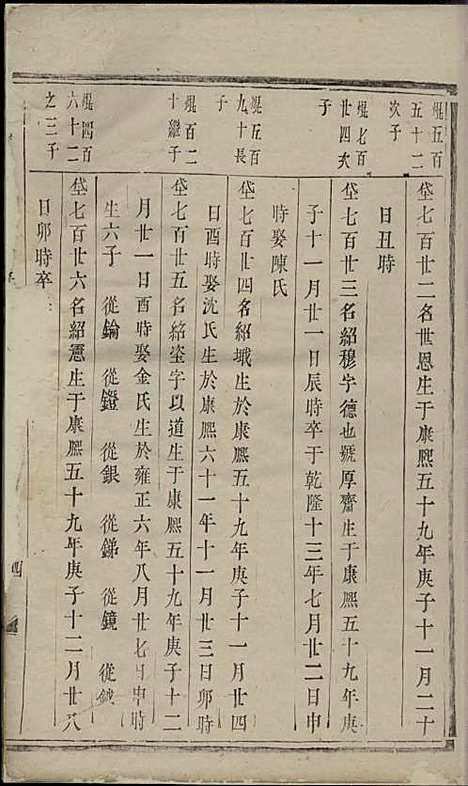 焜五百
五十二
次子
垡七百廿二名世恩生于康熙五十九年庚子十一月二十
日丑時
焜七百
廿四次
子
垡七百廿三名紹穆字德也號厚齋生于康熙五十九年庚
子十一月廿一日辰時卒于乾隆十三年七月廿二日申
時娶陳氏
焜五百
九十長
子
垡七百廿四名紹珴生於康熙五十九年庚子十一月廿四
日酉時娶沈氏生於康熙六十一年十一月廿三日卯時
焜百二
十繼子
垡七百廿五名紹瑬字以道生于康熙五十九年庚子十二
月廿一日酉時娶金氏生於雍正六年八月廿七日申時
生六子 從錀 從鐙 從銀 從銻 從鏡 從鉞
焜四百
六十二
之三子
垡七百廿六名紹憲生于康熙五十九年庚子十二月廿八
日卯時卒
四